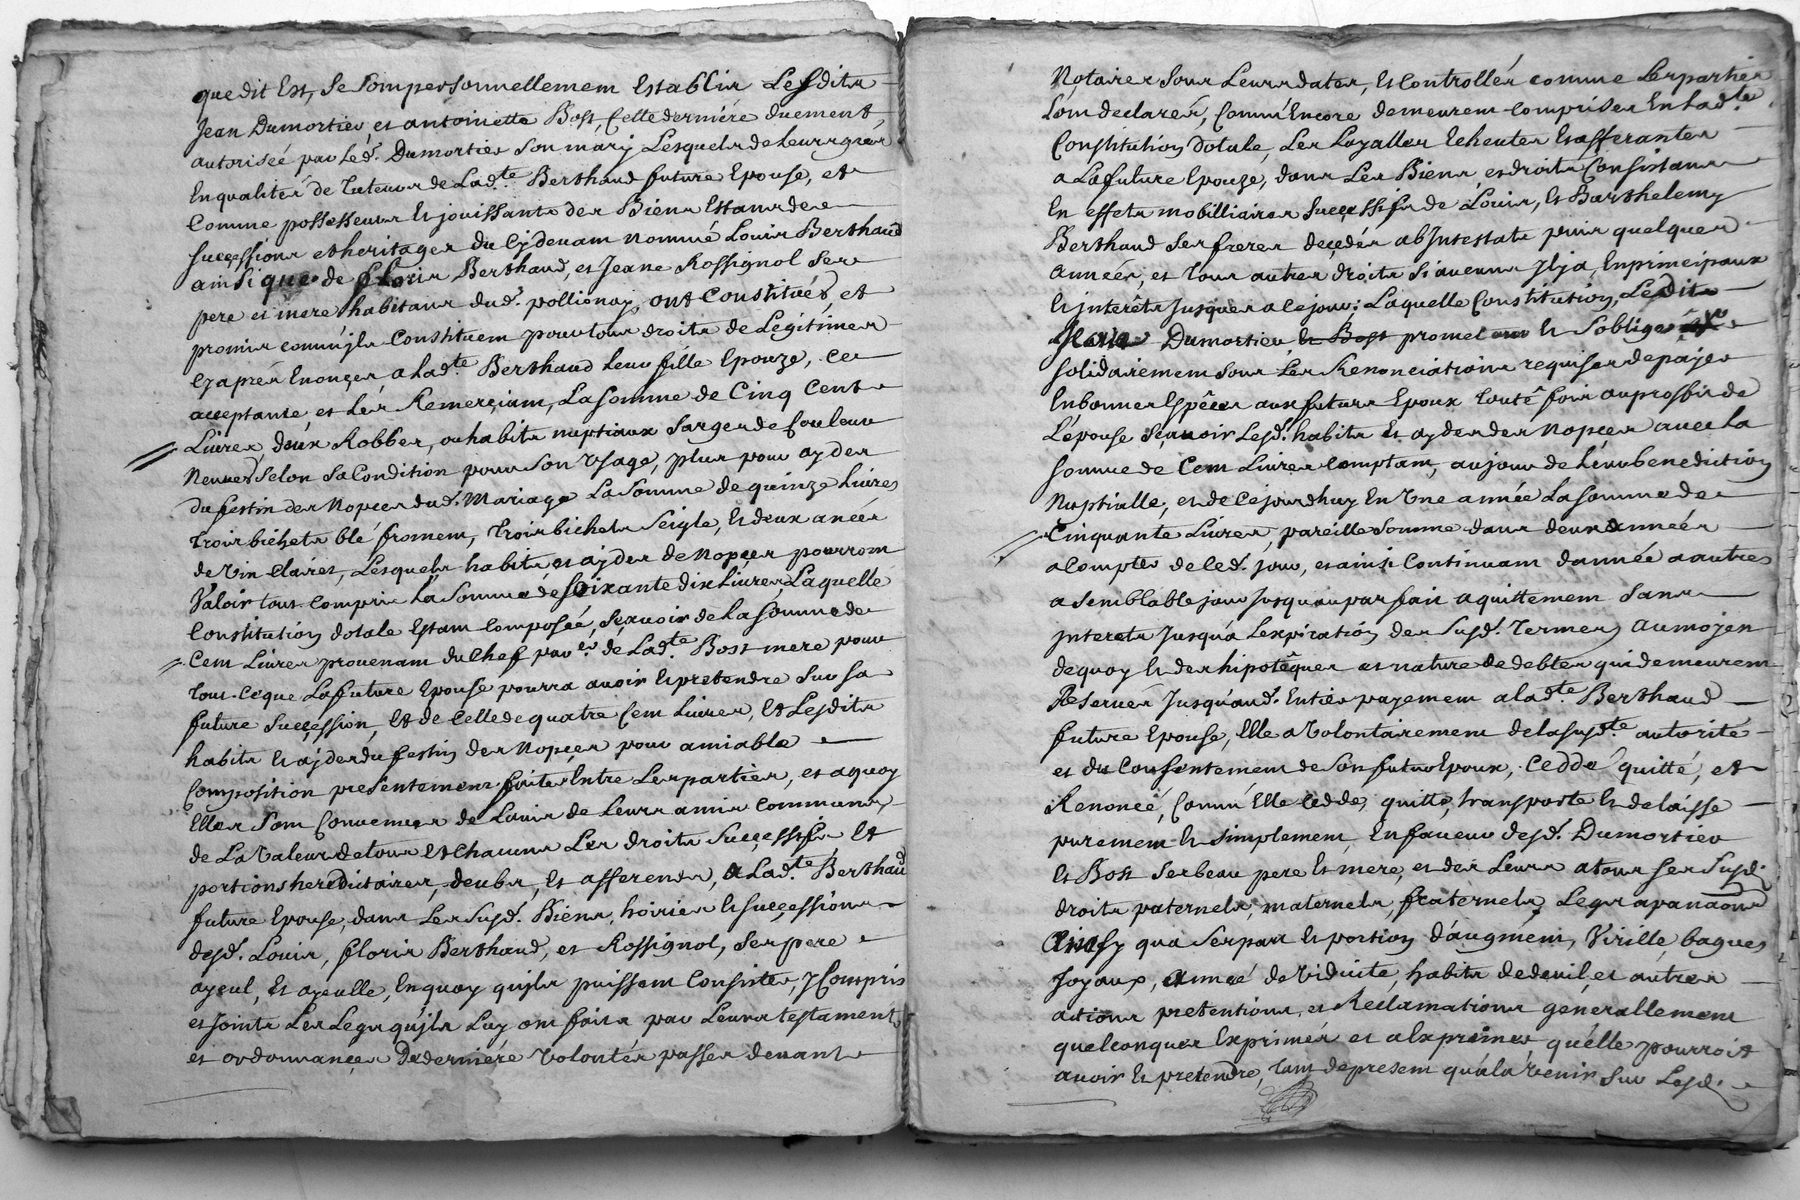 que dit Est, se sont personnellement Establis Lesdits
Jean Dumortier et antoinette Bost, Cette derniére duement
autoriseé par Led.t Dumortier son mary Lesquels de Leurs grés
En qualités de Tuteurs de Lad.te Berthaud future Epouse, et
Comme possesseurs Et jouissants des Biens Estants de
successions et heritages du Cÿdevant nommé Louis Berthaud
ainsi que de floris Berthaud, et Jeane Rossignol ses
pere et mere habitans dud.t pollionaÿ, ont Constitués, et
promis comm'jls Constituent pour tous droits de Legitimes
Cÿ aprés Enonçés, a Lad.te Berthaud Leur fille Epouze, Ce
acceptante et Les Remerçiant, La somme de Cinq Cents
Livres, deux Robbes, ou habits nuptiaux sarges de Couleur
Neuves selon sa Condition pour son Usage, plus pour aydes
du festin des Nopces dud.t Mariage La somme de quinze Livres
trois bichets blé froment, trois bichets seigle, Et deux aneés
de Vin Clairet, Lesquels habits et aydes de Nopçes pourront
Valoir tous compris La somme de soixante dix Livres, Laquelle
Constitution dotale Estant Composeé, sçavoir de La somme de
Cent Livres provenant du Chef par.er de Lad.te Bost mere pour
tout ce que La future Epouse pourra avoir Et pretendre sur sa
future succession, Et de Celle de quatre Cent Livres, Et Lesdits
habits Et aydes du festin des Nopçes pour amiable
Composition presentement faite Entre Les parties, et a quoy
Elles sont Convenues de L'avis de Leurs amis communs,
de La Valeur de tous Et Chacuns Les droits successifs Et
portions hereditaires, deubs, Et afferents, a Lad.te Berthaud
future Epouse, dans Les susd.t Biens, hoiries Et successions
desd.t Louis, floris Berthaud, et Rossignol, ses pere
ayeul, Et ayeulle, En quoy qu'jls puissent Consister, y Compris
et joints Les Legs qu'jls Luy ont faits par Leurs testaments
et ordonnançes De derniére Volontés passés devant
Notaires sous Leurs dates, Et Controllés comme Les parties
L'ont declarés, Comm'Encore demeurent comprises En Lad.te
Constitution dotale, Les Loyalles Echeutes Et afferantes
a La future Epouze, dans Les Biens, et droits Consistans
En effets mobilliaires successifs de Louis, Et Barthelemy
Berthaud ses freres decedés abJntestats puis quelques
années, et tous autres droits si aucuns Jl ÿ a, En principaux
Et interêts jusques a ce jour: Laquelle Constitution Lesdits
Dumortier et Bost promet Et s'oblige
solidairement sous Les Renonciations requises de payer
En bonnes Espêces aux futurs Epoux toute fois au proffit de
L'epouse sçavoir Lesd.t habits Et aydes des Nopces avec La
somme de Cent Livres comptant, au jour de Leur benediction
Nuptialle, et de Cejourdhuy En Une année La somme de
Cinquante Livres, pareille somme dans deux années
a Compter de Ced.t jour, et ainsi Continuant d'année a autres
a semblable jour jusqu'au parfait aquittement sans
jnterets jusqu'a L'expiration des susd.t termes, au moyen
de quoy Et des hipotêques et nature de debtes qui demeurent
Reservés jusqu'aud.t Entier payement a lad.te Berthaud
future Epouse, Elle a Volontairement de la susd.te autorité
et du Consentement de son futur Epoux, Ceddé quitté, et
Renoncé, Comm'Elle cedde, quitte, transporte Et delaisse
purement Et simplement, En faveur desd.t Dumortier
Et Bost ses beau pere Et mere, et des Leurs a tous ses susd.t
droits paternels, maternels, fraternels, Legs
Ainsy qu'a ses part Et portion d'augment, Virille bagues
Joyaux, année de Viduité, habits de deuil, et autres
actions pretentions, et Reclamations generallement
quelconques Exprimés et a Exprimer, qu'elle pourroit
avoir Et pretendre, tant de present qu'à la Venir sur Lesd.t